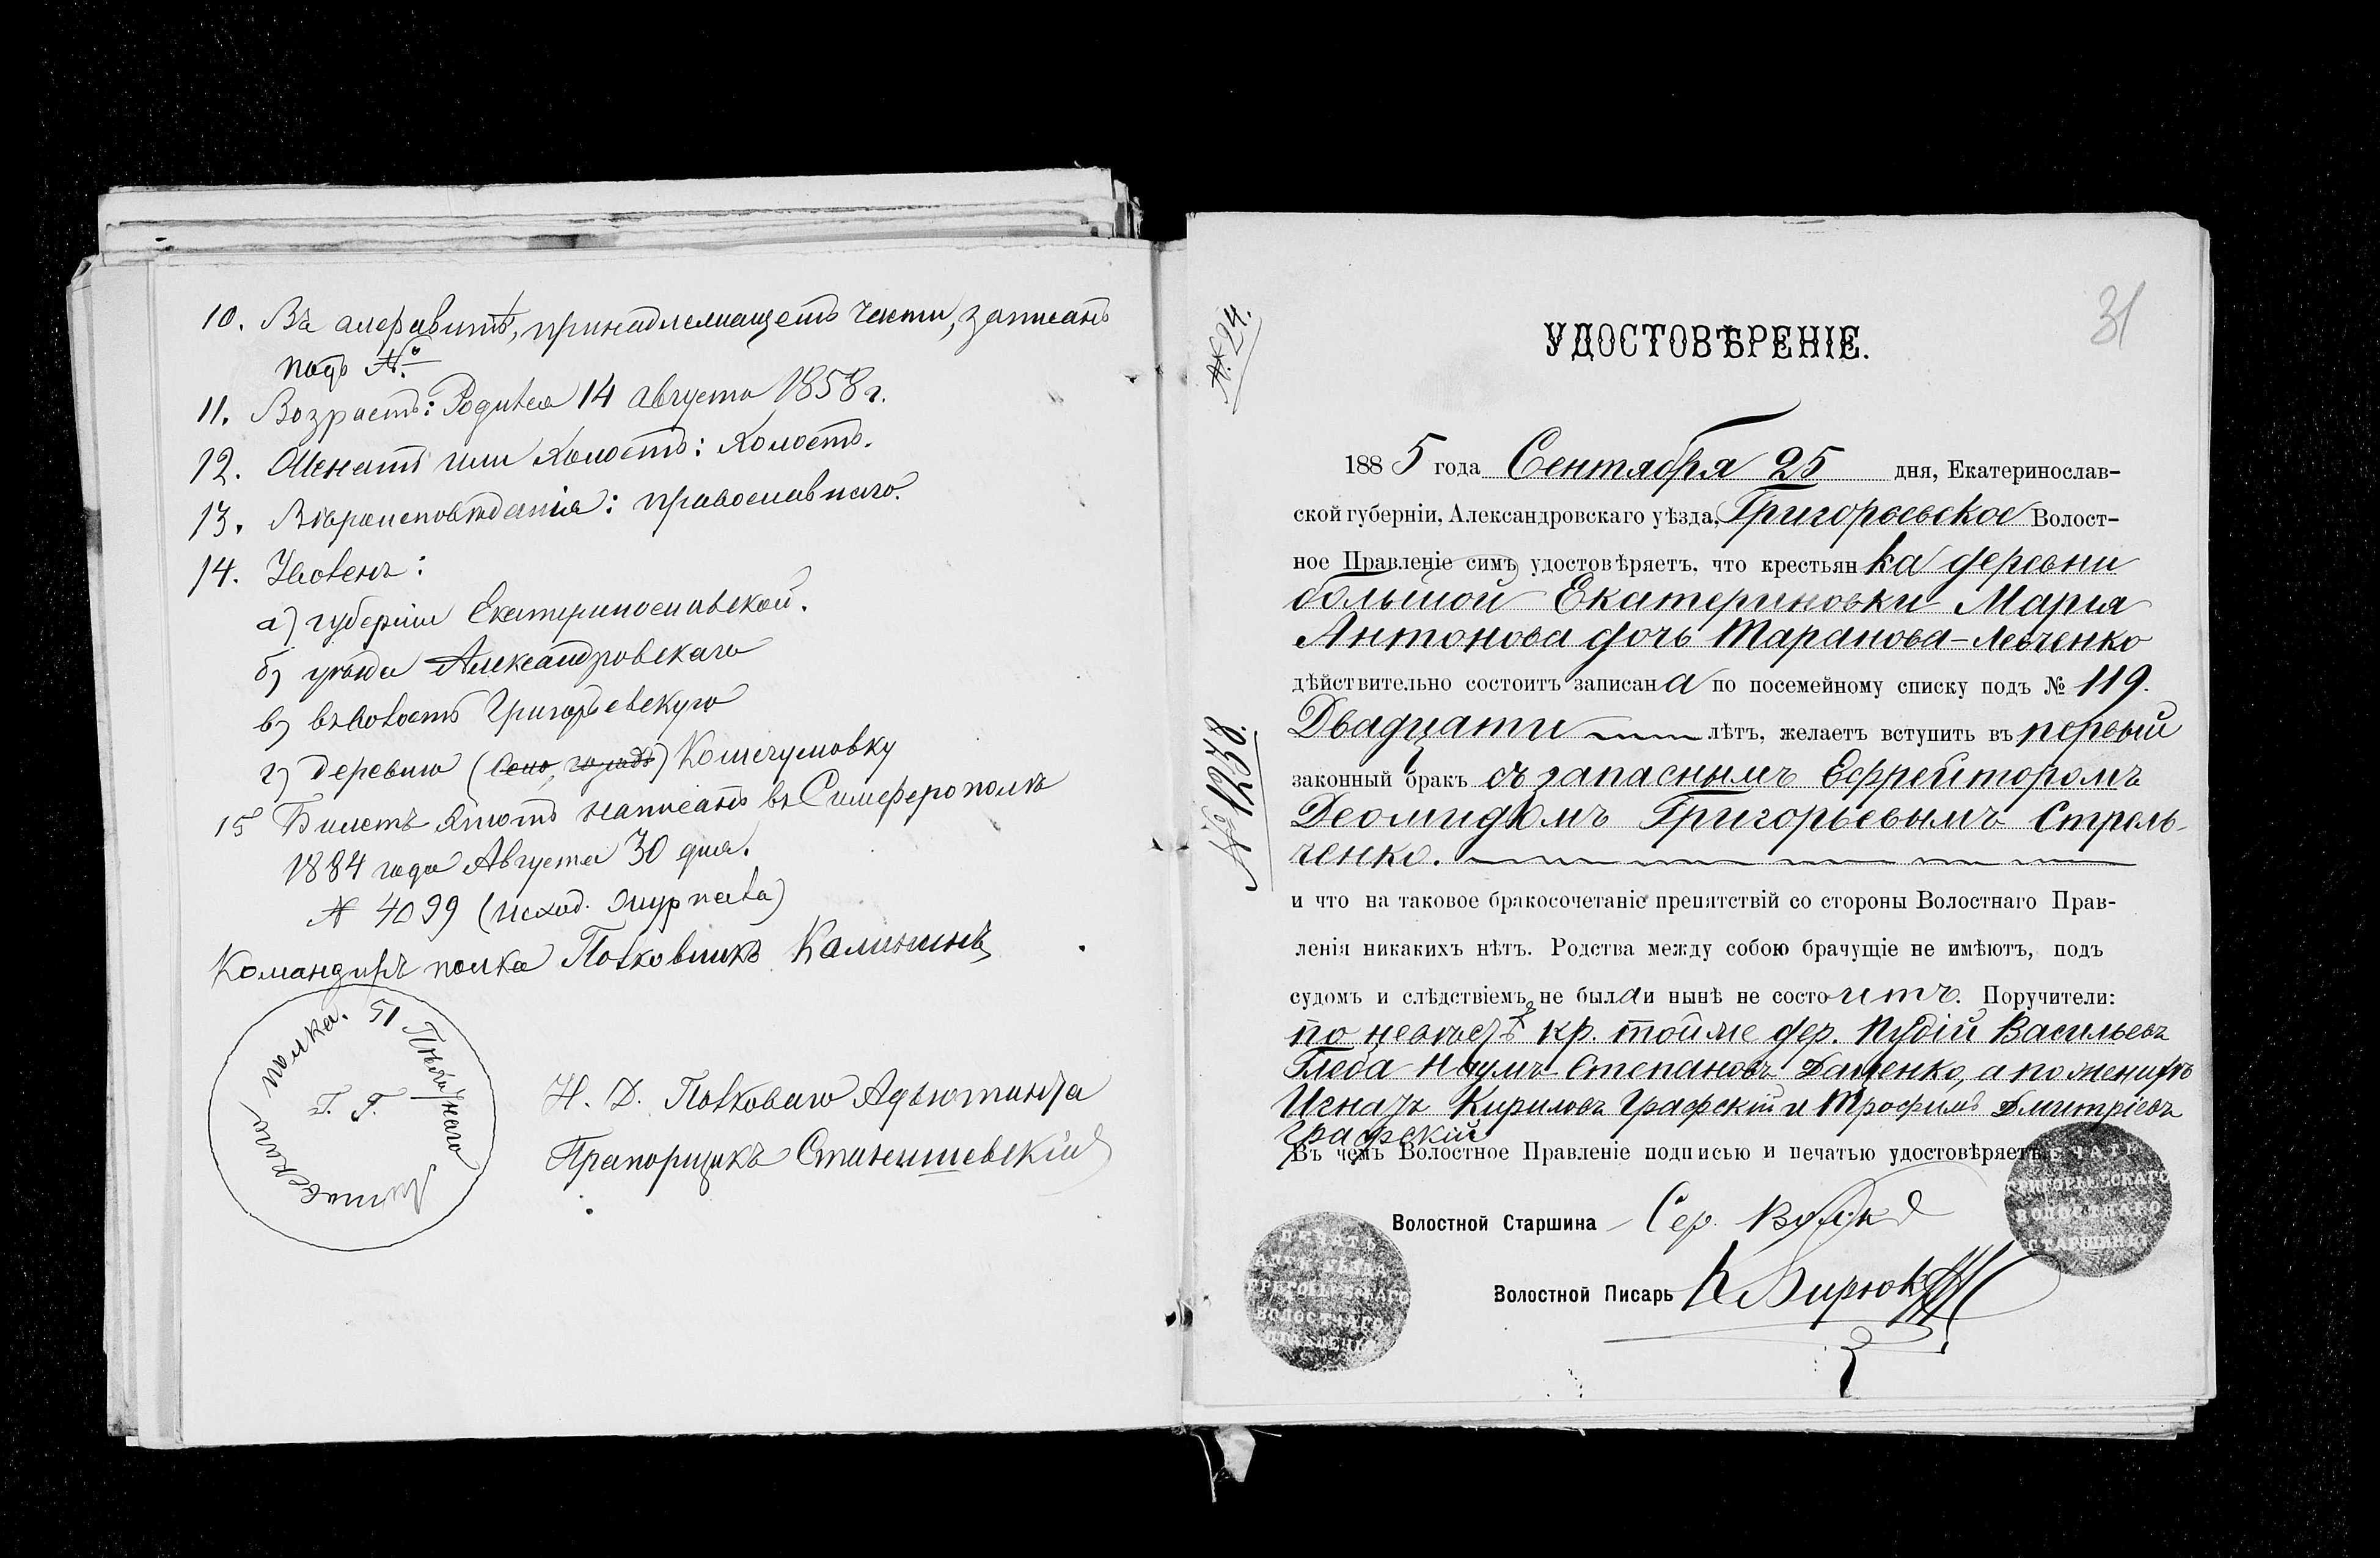 10. Въ алфавитѣ, принадлежащемъ части, записанъ
подъ №
11. Возрастъ: Родился 14 августа 1858 г.
12. Женатъ или холостъ: холостъ.
13. Вѣроисповѣданія: православнаго.
14. Уволенъ:
а) губерніи Екатеринославской.
б) уѣзда Александровскаго
в) въ волость Григорьевскую
г) деревню (село, городъ) Кошечумовку
15 Билетъ этотъ написанъ въ Симферополѣ
1884 года Августа 30 дня.
№ 4099 (исход. журнала)
Командиръ полка Полковникъ Калининъ
51 Пѣхотнаго Литовскаго полка.
Н. Д. Полковаго Адъютанта
Прапорщикъ Станишевскій
31
№ 24.
УДОСТОВѢРЕНІЕ.
1885 года Сентября 25 дня, Екатеринослав-
ской губерніи, Александровскаго уѣзда, Григорьевское Волост-
ное Правленіе симъ удостовѣряетъ, что крестьянка деревни
большой Екатериновки Марія
Антонова дочь Таранова-Левченко
дѣйствительно состоитъ записана по посемейному списку подъ № 119.
Двадцати лѣтъ, желаетъ вступить въ первый
законный бракъ съ запаснымъ Ефрейторомъ
Деомидомъ Григорьевымъ Стрель-
ченко.
№ 1238.
и что на таковое бракосочетаніе препятствій со стороны Волостнаго Прав-
ленія никакихъ нѣтъ. Родства между собою брачущіе не имѣютъ, подъ
судомъ и слѣдствіемъ не была и нынѣ не состоитъ. Поручители:
по невѣстѣ кр. тойже дер. Васильевъ
Глеба Наумъ Степановъ Даценко, а по женихѣ
Игнатъ Кириловъ Графскій и Трофимъ Дмитріевъ
Графскій
Въ чемъ Волостное Правленіе подписью и печатью удостовѣряетъ.
Волостной Старшина Сер.
Волостной Писарь Бирюк
ПЕЧАТЬ
ГРИГОРЬЕВСКАГО
ВОЛОСТНАГО
СТАРШИНЫ
ПЕЧАТЬ
АЛЕК. УѢЗДА
ГРИГОРЬЕВСКАГО
ВОЛОСТНАГО
ПРАВЛЕНІЯ